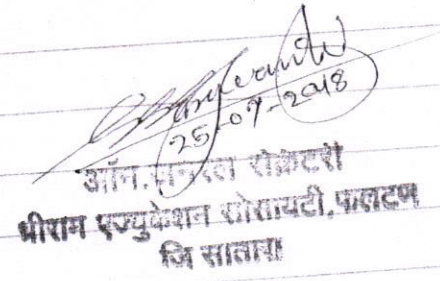 25-07-2018
ऑन. जनरल सेक्रेटरी
श्रीराम एज्युकेशन सोसायटी, फलटण
जि सातारा